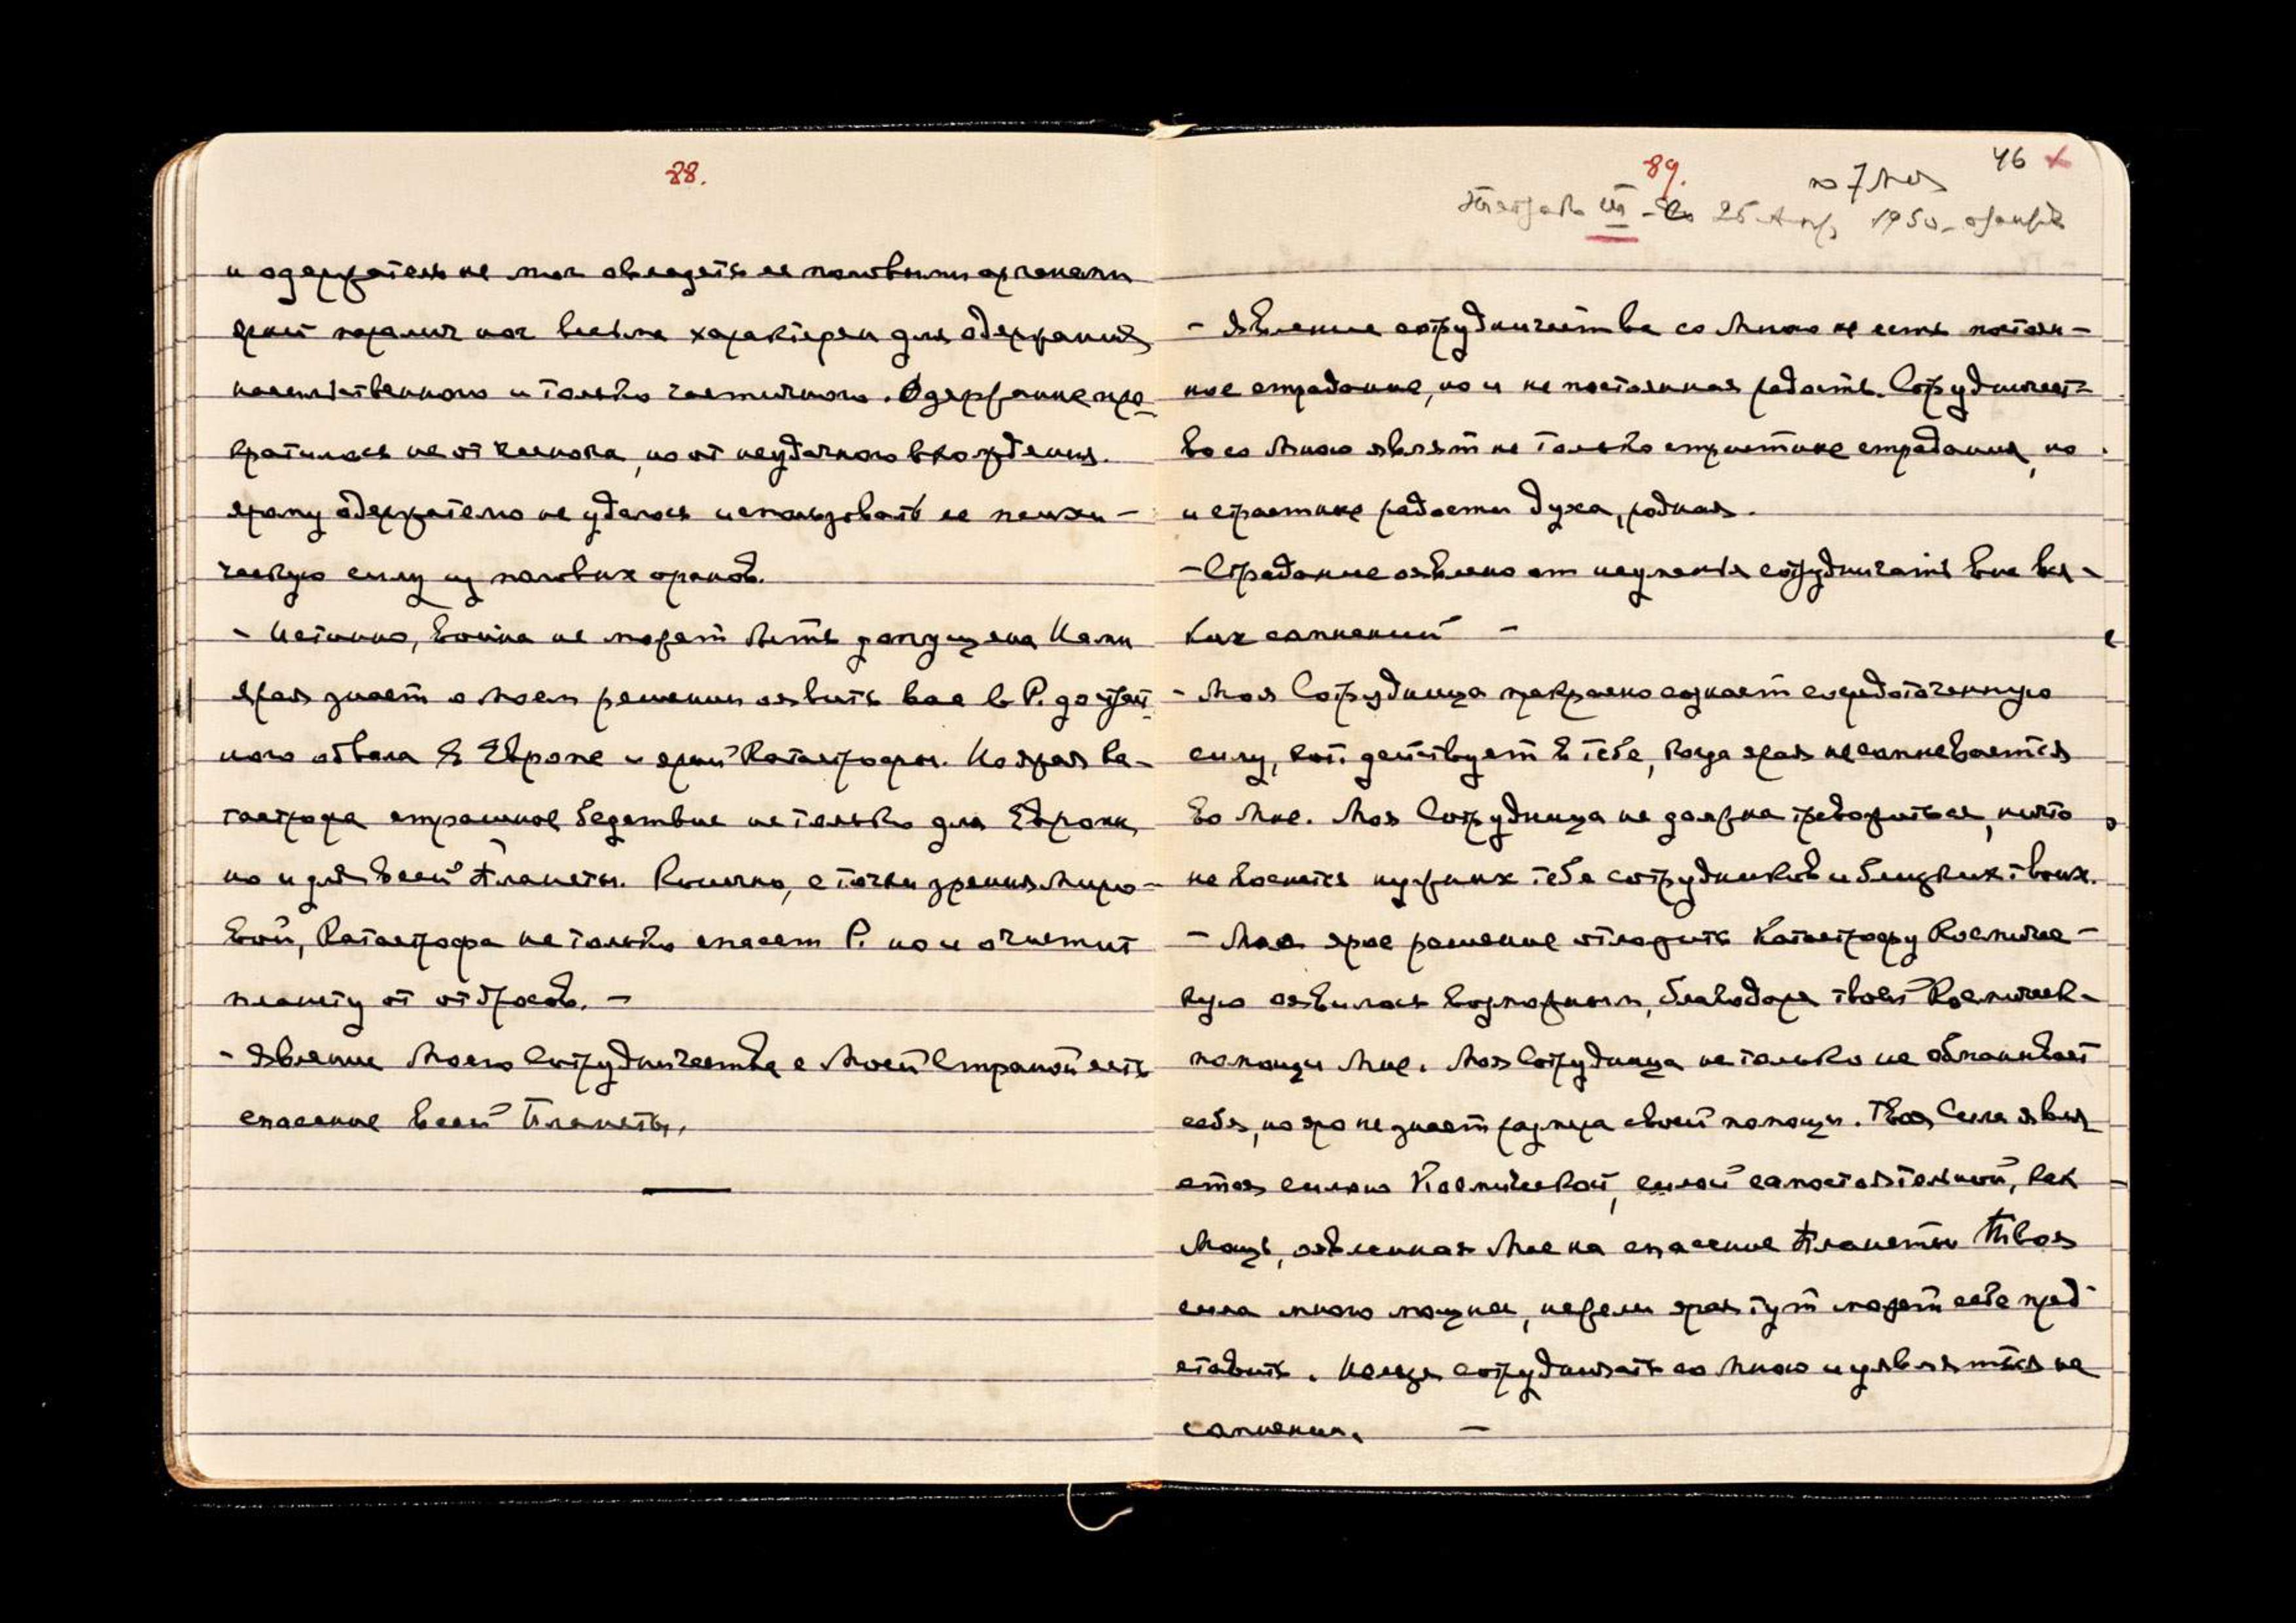 88.
и одержатель не мог овладеть ее половыми органами
ярый паралич ног весьма характерен для одержания
насильственного и только частичного. Одержание пре
кратилось не от чеснока, но от неудачного вхождения.
ярому одержателю не удалось использовать ее психи-
ческую силу из половых органов.
- Истинно, Война не может быть допущена Нами
ярая знает о Моем решении явить вас в Р. до
ного обвала в Европе и ярой Катастрофы. Но ярая Ка-
тастрофа страшное бедствие не только для Европы,
но и для всей Планеты. Конечно, с точки зрения Миро-
вой, Катастрофа не только спасет Р. но и очистит
планету от отбросов. -
- Явление Моего Сотрудничества с Моей Страной есть
спасение всей Планеты.
89.
46
по 7 Мая
Тетрадь III - 25 Апр. 1950
- Явление сотрудничества со Мною не есть постоян-
ное страдание, но и не постоянная радость. Сотрудничест-
во со Мною являет не только страшные страдания, но
и страстные радости духа, родная.
- Страдание явлено от неумения сотрудничать вне вся-
ких сомнений -
- Моя Сотрудница прекрасно сознает сосредоточенную
силу, кот. действует в тебе, когда ярая не сомневается
во Мне. Моя Сотрудница не должна тревожиться, ничто
не коснется нужных тебе сотрудников и близких твоих.
- Мое ярое решение отложить Катастрофу Космичес-
кую явилось возможным, благодаря твоей Космическ-
помощи Мне. Моя Сотрудница не только не обманывает
себя, но яро не знает размера своей помощи. Твоя Сила явля
ется силою Космической, силой самостоятельной, как
Мощь, явленная Мне на спасение Планеты Твоя
сила много мощнее, нежели ярая тут может себе пред
ставить. Нельзя сотрудничать со Мною и уявляться на
сомнении. -